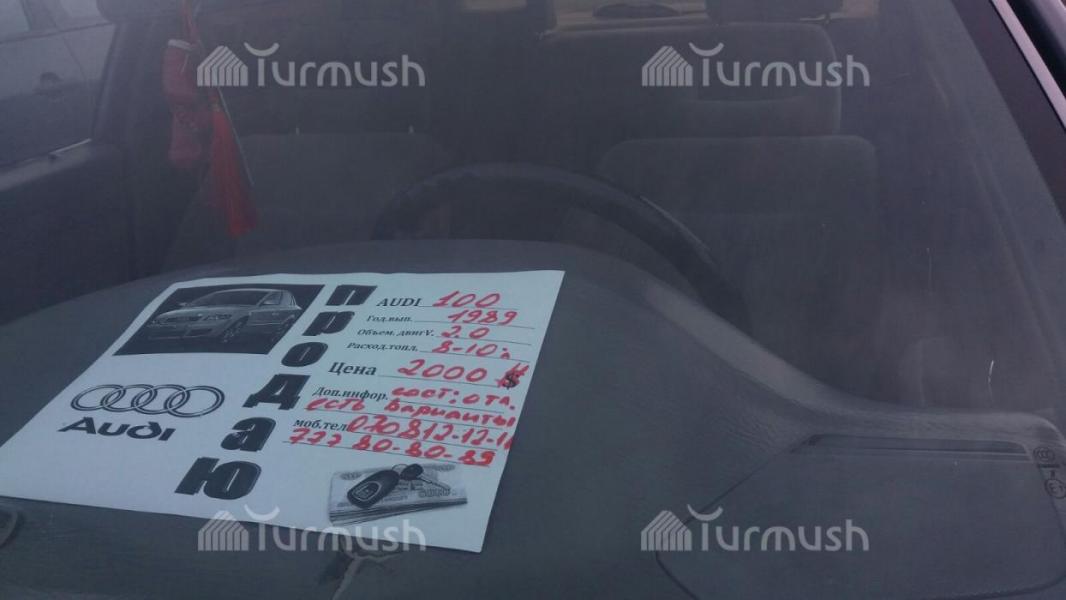 Turmush
Turmush
продаю
AUDI 100
Год.вып. 1989
Объем. двигV. 2.0
Расход.топл. 8-10
Цена 2000 $
Доп.инфор. сост: отл.
есть варианты
моб.тел
777 80-80-89
Audi
Turmush
Turmush